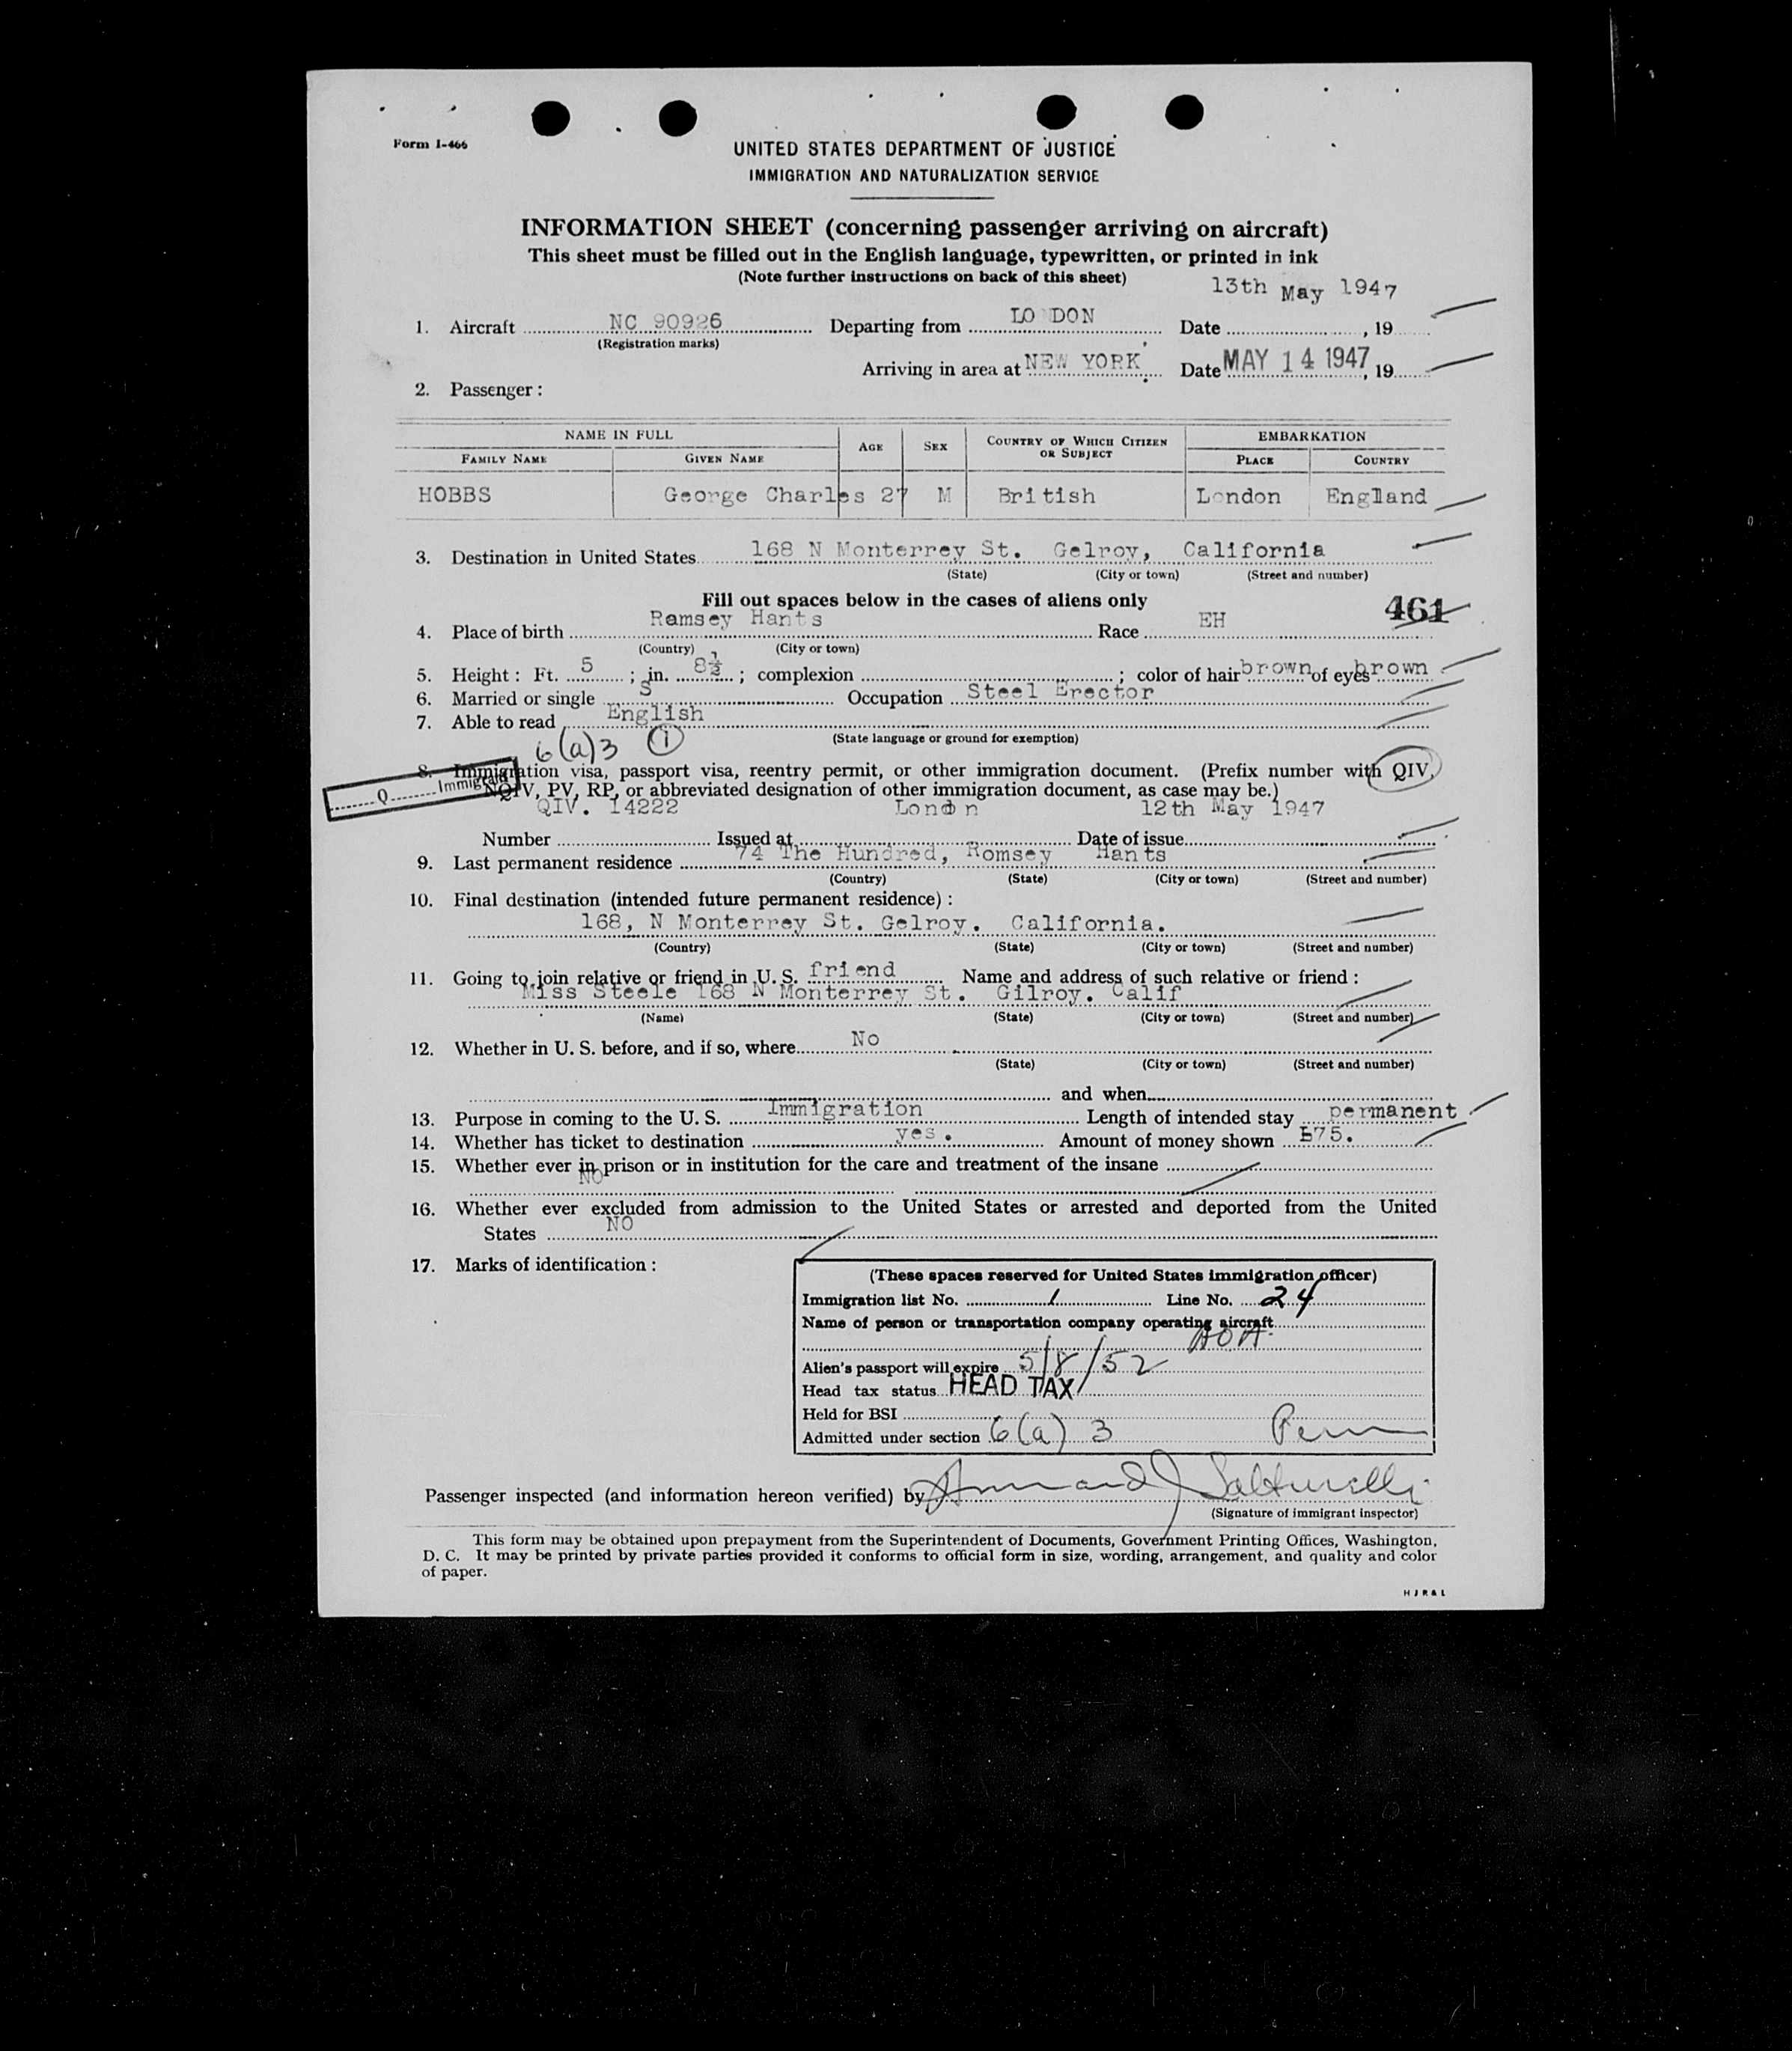 Form I-466
UNITED STATES DEPARTMENT OF JUSTICE
IMMIGRATION AND NATURALIZATION SERVICE
INFORMATION SHEET (concerning passenger arriving on aircraft)
This sheet must be filled out in the English language, typewritten, or printed in ink
(Note further instructions on back of this sheet)
13th May 1947
1. Aircraft NC 90926 Departing from LO DON Date , 19
(Registration marks)
Arriving in area at NEW YORK Date MAY 14 1947, 19
2. Passenger :
NAME IN FULL AGE SEX COUNTRY OF WHICH CITIZEN OR SUBJECT EMBARKATION
FAMILY NAME GIVEN NAME PLACE COUNTRY
HOBBS George Charles 27 M British London England
3. Destination in United States 168 N Monterrey St. Gelroy, California
(State) (City or town) (Street and number)
Fill out spaces below in the cases of aliens only
461
4. Place of birth Ramsey Hants Race EH
(Country) (City or town)
5. Height : Ft. 5 ; in. 8½ ; complexion ; color of hair brown of eyes brown
6. Married or single S Occupation Steel Erector
7. Able to read English
(State language or ground for exemption)
6(a)3 1
8. Immigration visa, passport visa, reentry permit, or other immigration document. (Prefix number with QIV,
Q Immigrant
NQIV, PV, RP, or abbreviated designation of other immigration document, as case may be.)
QIV. 14222 Londn 12th May 1947
Number Issued at Date of issue
9. Last permanent residence 74 The Hundred, Romsey Hants
(Country) (State) (City or town) (Street and number)
10. Final destination (intended future permanent residence) :
168, N Monterrey St. Gelroy. California.
(Country) (State) (City or town) (Street and number)
11. Going to join relative or friend in U. S. friend Name and address of such relative or friend :
Miss Steele 168 N Monterrey St. Gilroy. Calif
(Name) (State) (City or town) (Street and number)
12. Whether in U. S. before, and if so, where No
(State) (City or town) (Street and number)
and when
13. Purpose in coming to the U. S. Immigration Length of intended stay permanent
14. Whether has ticket to destination yes. Amount of money shown £75.
15. Whether ever in prison or in institution for the care and treatment of the insane
NO
16. Whether ever excluded from admission to the United States or arrested and deported from the United
States NO
17. Marks of identification :
(These spaces reserved for United States immigration officer)
Immigration list No. 1 Line No. 24
Name of person or transportation company operating aircraft
AOA
Alien's passport will expire 5/8/52
Head tax status HEAD TAX
Held for BSI
Admitted under section 6(a) 3 Perm
Passenger inspected (and information hereon verified) by Armand J
(Signature of immigrant inspector)
This form may be obtained upon prepayment from the Superintendent of Documents, Government Printing Offices, Washington,
D. C. It may be printed by private parties provided it conforms to official form in size, wording, arrangement, and quality and color
of paper.
H J R & L